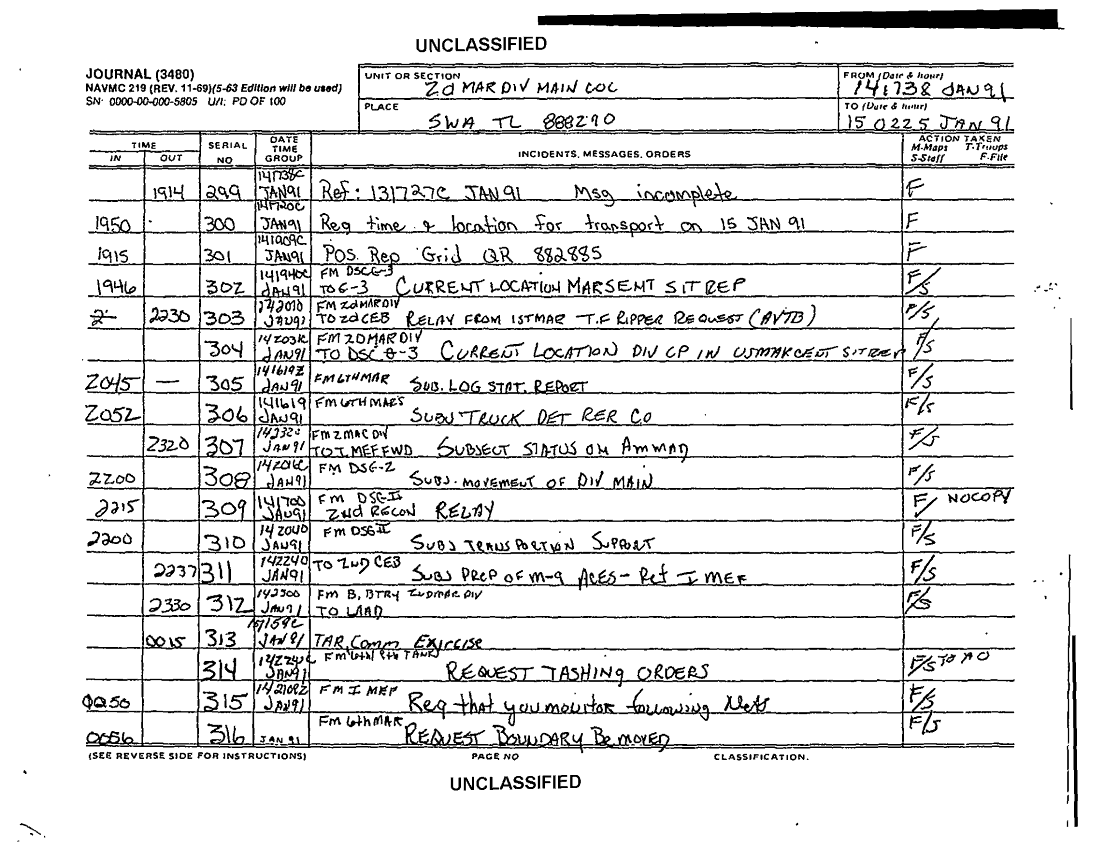 UNCLASSIFIED
JOURNAL (3480)
NAVMC 219 (REV. 11-69)(5-63 Edition will be used)
SN: 0000-00-000-5805 U/I: PD OF 100
UNIT OR SECTION
2d MAR DIV MAIN COC
PLACE
SWA TL 888290
FROM (Date & hour)
141738 JAN 91
TO (Date & hour)
15 0225 JAN 91
TIME
IN OUT
SERIAL NO
DATE TIME GROUP
INCIDENTS, MESSAGES, ORDERS
ACTION TAKEN
M-Maps T-Troops
S-Staff F-File
1914 299 141738C JAN91 Ref: 131727C JAN91 Msg incomplete F
1950 300 141720C JAN91 Req time & location for transport on 15 JAN 91 F
1915 301 141909C JAN91 POS Rep Grid QR 882885 F
1946 302 141940C JAN91 FM DSC G-3 TO G-3 CURRENT LOCATION MARSENT SITREP F/S
2230 303 142010 JAN91 FM 2d MAR DIV TO 2d CEB RELAY FROM 1STMAR T.F RIPPER REQUEST (AVTB) F/S
304 JAN91 FM 2D MAR DIV TO DSC G-3 CURRENT LOCATION DIV CP IN USMARCENT SITREP F/S
2045 — 305 141619Z JAN91 FM 6THMAR SUB. LOG STAT. REPORT F/S
2052 306 141619 JAN91 FM 6THMARS SUBJ TRUCK DET RER CO F/S
2320 307 JAN91 FM 2MAR DIV TO I MEF FWD SUBJECT STATUS ON AMMAD F/S
2200 308 JAN91 FM DSG-2 SUBJ. MOVEMENT OF DIV MAIN F/S
2215 309 141700 JAN91 FM DSG-II 2nd RECON RELAY F/ NO COPY
2200 310 142000 JAN91 FM DSG II SUBJ TRANSPORTION SUPPORT F/S
2237 311 142240 JAN91 TO 2ND CEB SUBJ PREP OF M-9 ACES - Ref I MEF F/S
2330 312 142300 JAN91 FM B, BTRY 2NDMAR DIV TO LAAD F/S
0015 313 JAN91 TAR Comm Exircise
314 JAN91 FM 8th TANK REQUEST TASHING ORDERS F/S TO AO
0050 315 142109Z JAN91 FM I MEF Req that you monitor following Nets F/S
0056 316 JAN 91 FM 6thMAR REQUEST BOUNDARY BE MOVED F/S
(SEE REVERSE SIDE FOR INSTRUCTIONS) PAGE NO CLASSIFICATION.
UNCLASSIFIED